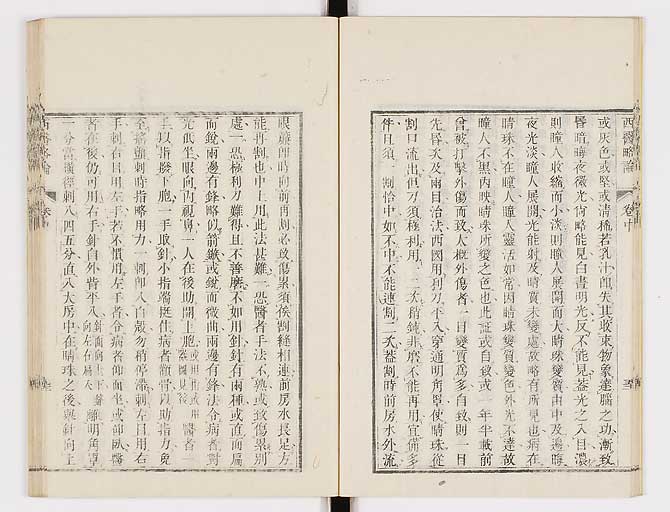 西醫略論 卷中
或灰色或堅或清稀若乳汁即失其收束物象達腦之功漸致
昏暗每夜微光尚略能見白晝明光反不能見蓋光之入目濃
則瞳人收縮而小淡則瞳人展開而大睛珠變質由中及邊每
夜光淡瞳人展開光能射及睛質未變處故略有所見也病在
睛珠不在瞳人瞳人靈活如常因睛珠變質變色外光不達故
瞳人不黑內映睛珠所變之色也此証或自致或一年半載前
曾被打擊外傷而致大概外傷者一目變質爲多自致則一目
先昏次及兩目治法西國用利刀平入穿通明角罩使睛珠從
割口流出但刀須極利用一次稍鈍非磨不能再用宜備多
件且須一割恰中如不中不能連割二次蓋割時前房水外流
眼簾即時向前再割必致傷累須俟割縫相連前房水長足方
能再割也中土用此法甚難一恐醫者手法不熟或致傷累別
處一恐極利刀難得且不善磨不如用針針有兩種或直而扁
而銳兩邊有鋒略似箭鏃或銳而微曲兩邊有鋒法令病者對
光低坐眼向內視鼻一人在後助開上胞醫者一
手以指撥下胞一手取針小指端挺住病者顴骨以助指力免
至搖盪刺時指略用力一刺即入白殼勿稍停滯刺左目用右
手刺右目用左手若不慣用左手者令病者仰面坐或仰臥醫
者在後仍可用右手針自外眥平入離明角罩
一分當橫徑刺入四五分直入大房中在睛珠之後與針向上